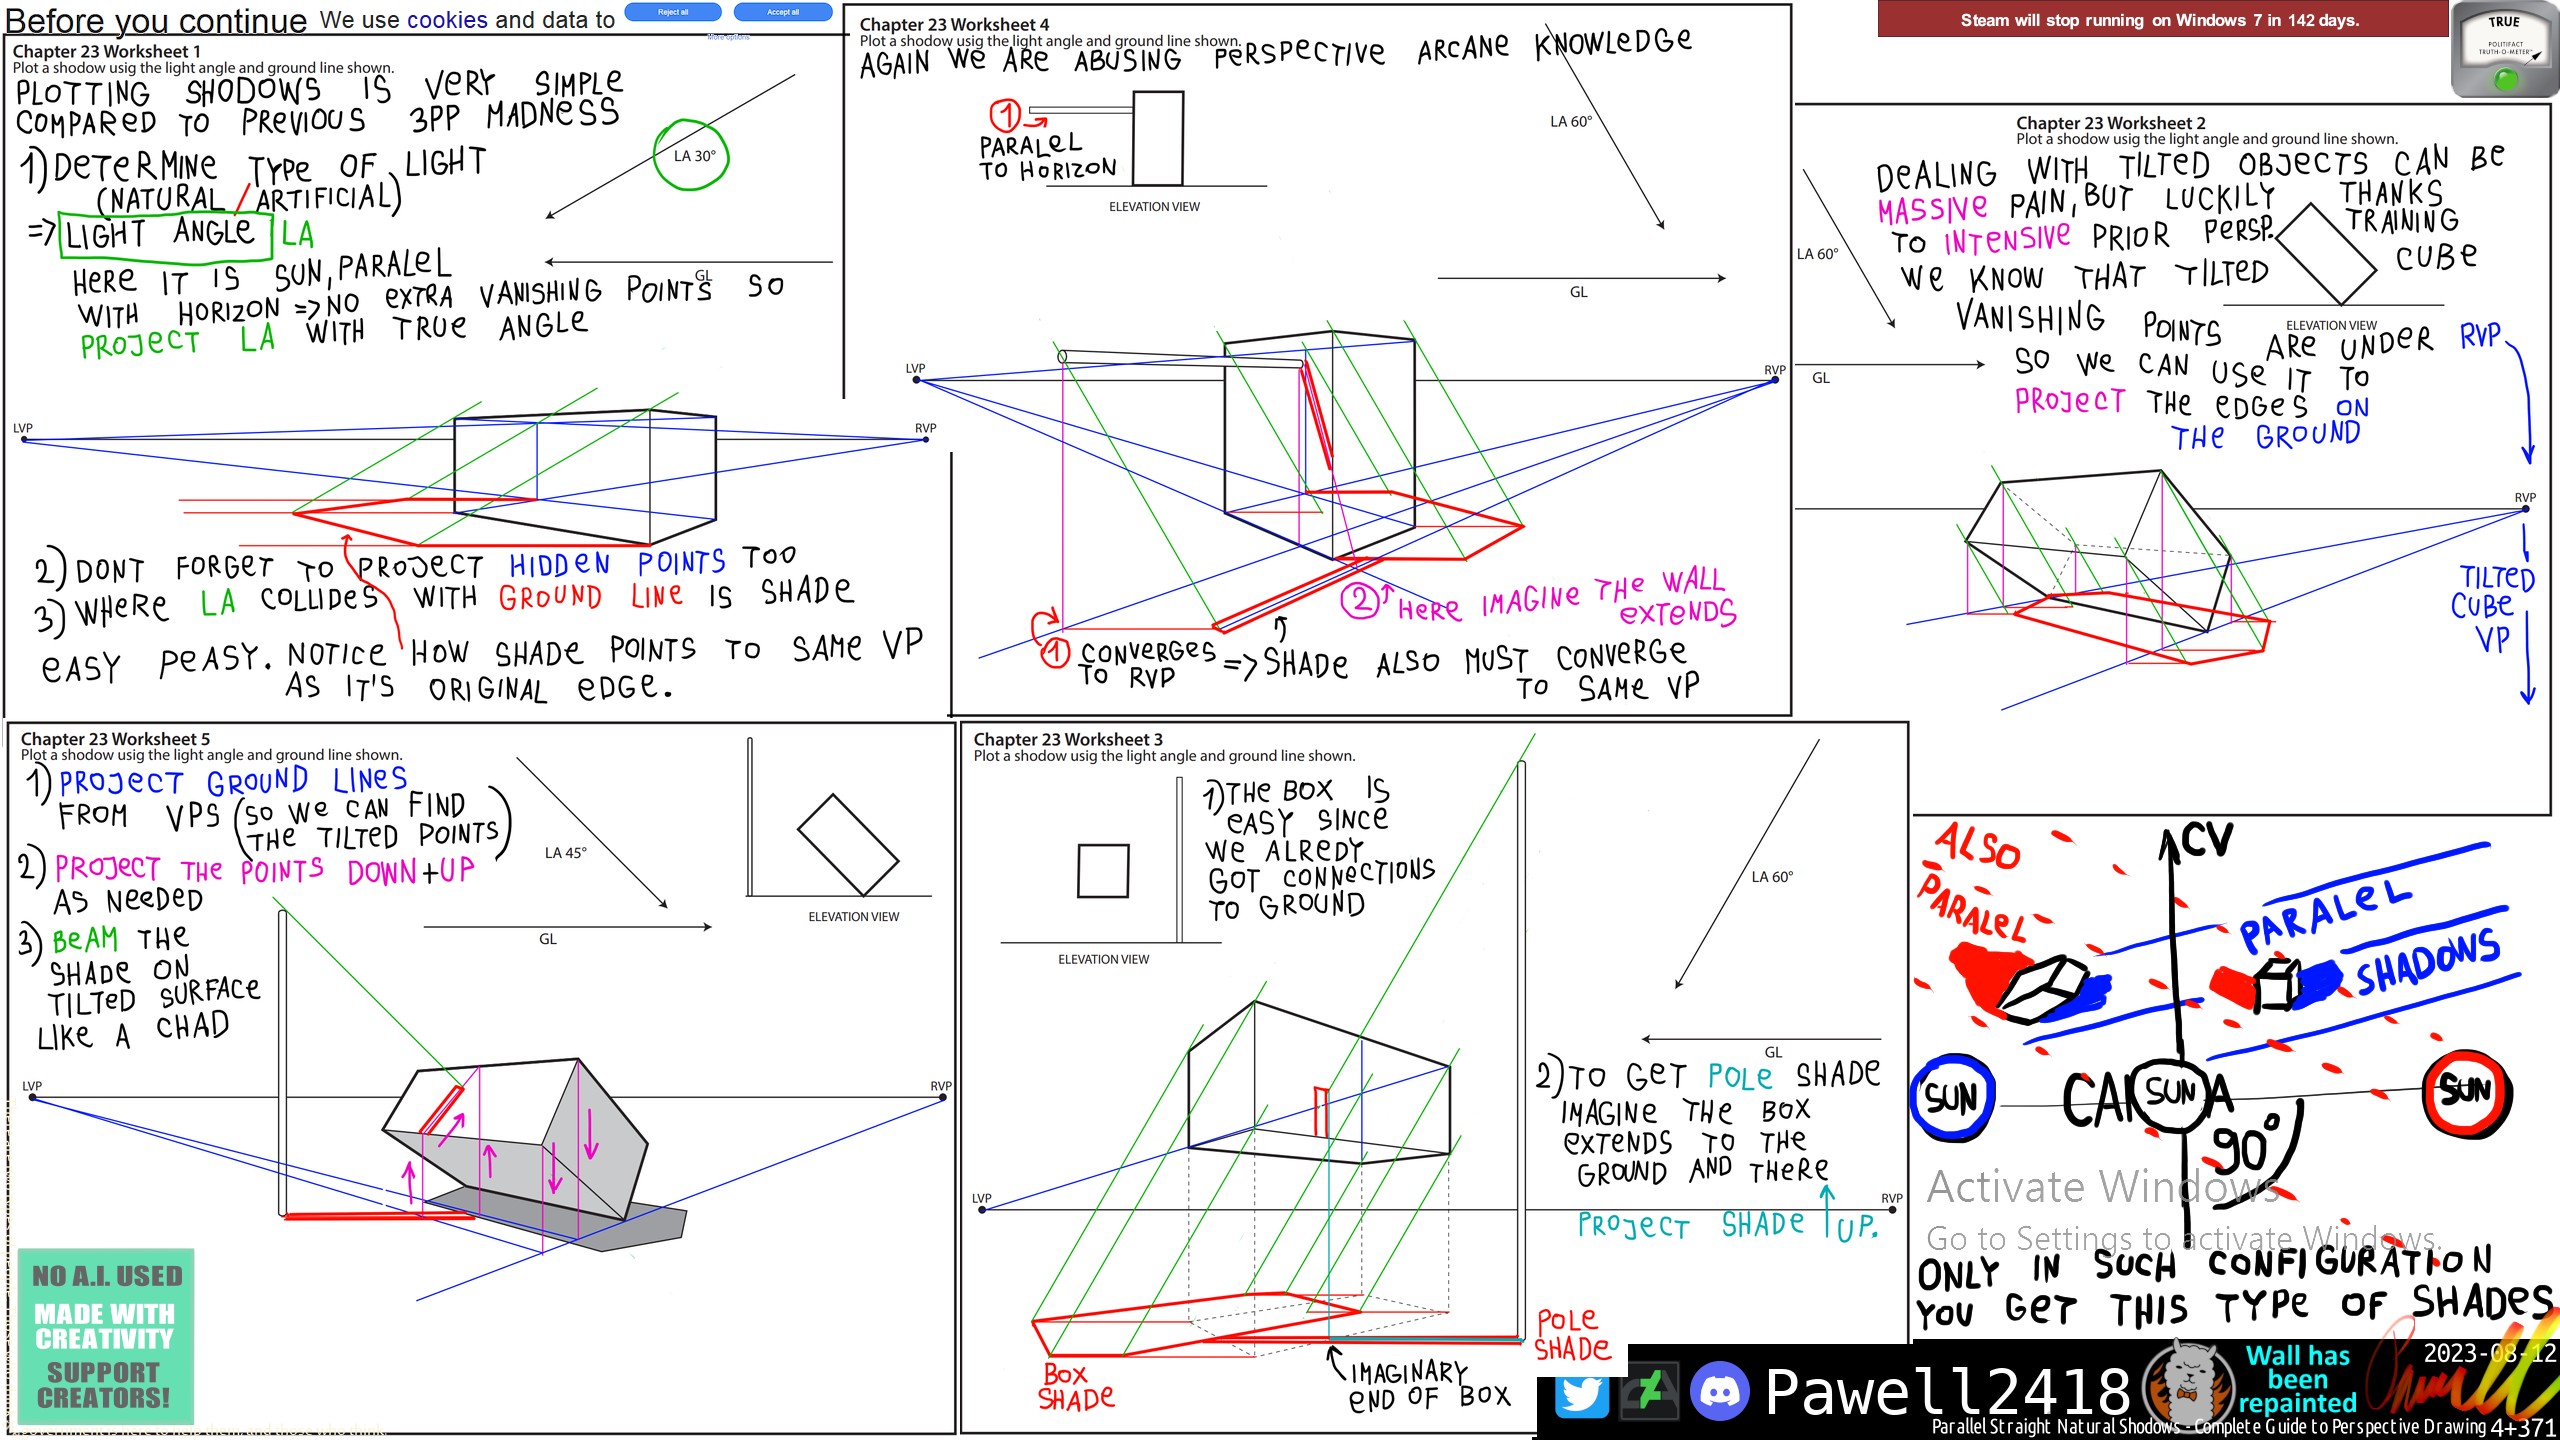 Before you continue We use cookies and data to
Reject all
Accept all
More options
Chapter 23 Worksheet 1
Plot a shodow usig the light angle and ground line shown.
PLOTTING SHODOWS IS VERY SIMPLE
COMPARED TO PREVIOUS 3PP MADNESS
1) DETERMINE TYPE OF LIGHT
(NATURAL / ARTIFICIAL)
=> LIGHT ANGLE LA
HERE IT IS SUN, PARALEL
WITH HORIZON => NO EXTRA VANISHING POINTS SO
PROJECT LA WITH TRUE ANGLE
LA 30°
GL
LVP
RVP
2) DONT FORGET TO PROJECT HIDDEN POINTS TOO
3) WHERE LA COLLIDES WITH GROUND LINE IS SHADE
EASY PEASY. NOTICE HOW SHADE POINTS TO SAME VP
AS IT'S ORIGINAL EDGE.
Chapter 23 Worksheet 4
Plot a shodow usig the light angle and ground line shown.
AGAIN WE ARE ABUSING PERSPECTIVE ARCANE KNOWLEDGE
1
PARALEL
TO HORIZON
ELEVATION VIEW
LA 60°
GL
LVP
RVP
2 HERE IMAGINE THE WALL
EXTENDS
1 CONVERGES
TO RVP
=> SHADE ALSO MUST CONVERGE
TO SAME VP
Steam will stop running on Windows 7 in 142 days.
TRUE
POLITIFACT
TRUTH-O-METER™
Chapter 23 Worksheet 2
Plot a shodow usig the light angle and ground line shown.
DEALING WITH TILTED OBJECTS CAN BE
MASSIVE PAIN, BUT LUCKILY THANKS
TO INTENSIVE PRIOR PERSP. TRAINING
WE KNOW THAT TILTED CUBE
VANISHING POINTS ARE UNDER RVP
SO WE CAN USE IT TO
PROJECT THE EDGES ON
THE GROUND
ELEVATION VIEW
LA 60°
GL
RVP
TILTED
CUBE
VP
Chapter 23 Worksheet 5
Plot a shodow usig the light angle and ground line shown.
1) PROJECT GROUND LINES
FROM VPS (SO WE CAN FIND
THE TILTED POINTS)
2) PROJECT THE POINTS DOWN+UP
AS NEEDED
3) BEAM THE
SHADE ON
TILTED SURFACE
LIKE A CHAD
LA 45°
GL
ELEVATION VIEW
LVP
RVP
NO A.I. USED
MADE WITH
CREATIVITY
SUPPORT
CREATORS!
Chapter 23 Worksheet 3
Plot a shodow usig the light angle and ground line shown.
1) THE BOX IS
EASY SINCE
WE ALREDY
GOT CONNECTIONS
TO GROUND
ELEVATION VIEW
LA 60°
GL
2) TO GET POLE SHADE
IMAGINE THE BOX
EXTENDS TO THE
GROUND AND THERE
PROJECT SHADE UP.
LVP
RVP
BOX
SHADE
POLE
SHADE
IMAGINARY
END OF BOX
ALSO
PARALEL
CV
PARALEL
SHADOWS
SUN
SUN
SUN
90°
Activate Windows
Go to Settings to activate Windows.
ONLY IN SUCH CONFIGURATION
YOU GET THIS TYPE OF SHADES
Pawell2418
Wall has
been
repainted
2023-08-12
Parallel Straight Natural Shodows - Complete Guide to Perspective Drawing 4+371